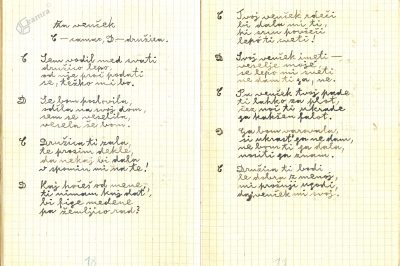 kamra
Za venček
C – camar, D – družica.
C Sem vodil med svati
družico lepo,
od nje proč podati
se, težko mi bo.
D Se bom poslovila
odšla na svoj dom,
sem se veselila
vesela še bom.
C Družica ti zala,
te prosim dekle,
da nekaj bi dala
v spomin mi na te!
D Kaj hočeš od mene,
ti nimam kaj dat,
bi fige medene
pa žemljico rad?
C Tvoj venček rdeči
bi dala mi ti,
bi srni povšeči
lepó ti sveti!
D Svoj venček imeti –
veselje moje,
se lepo mi sveti
ne dam ti ga, ne.
C Pa venček tvoj pade
ti lahko za plot,
čez noč ti ukrade
ga kakšen falot.
D Ga bom varovala,
si ukrast ga ne dam,
ne bom ti ga dala,
nositi ga znam.
C Družica ti bodi
le dobra z menoj,
mi prošnji ugodi,
daj venček mi svoj.